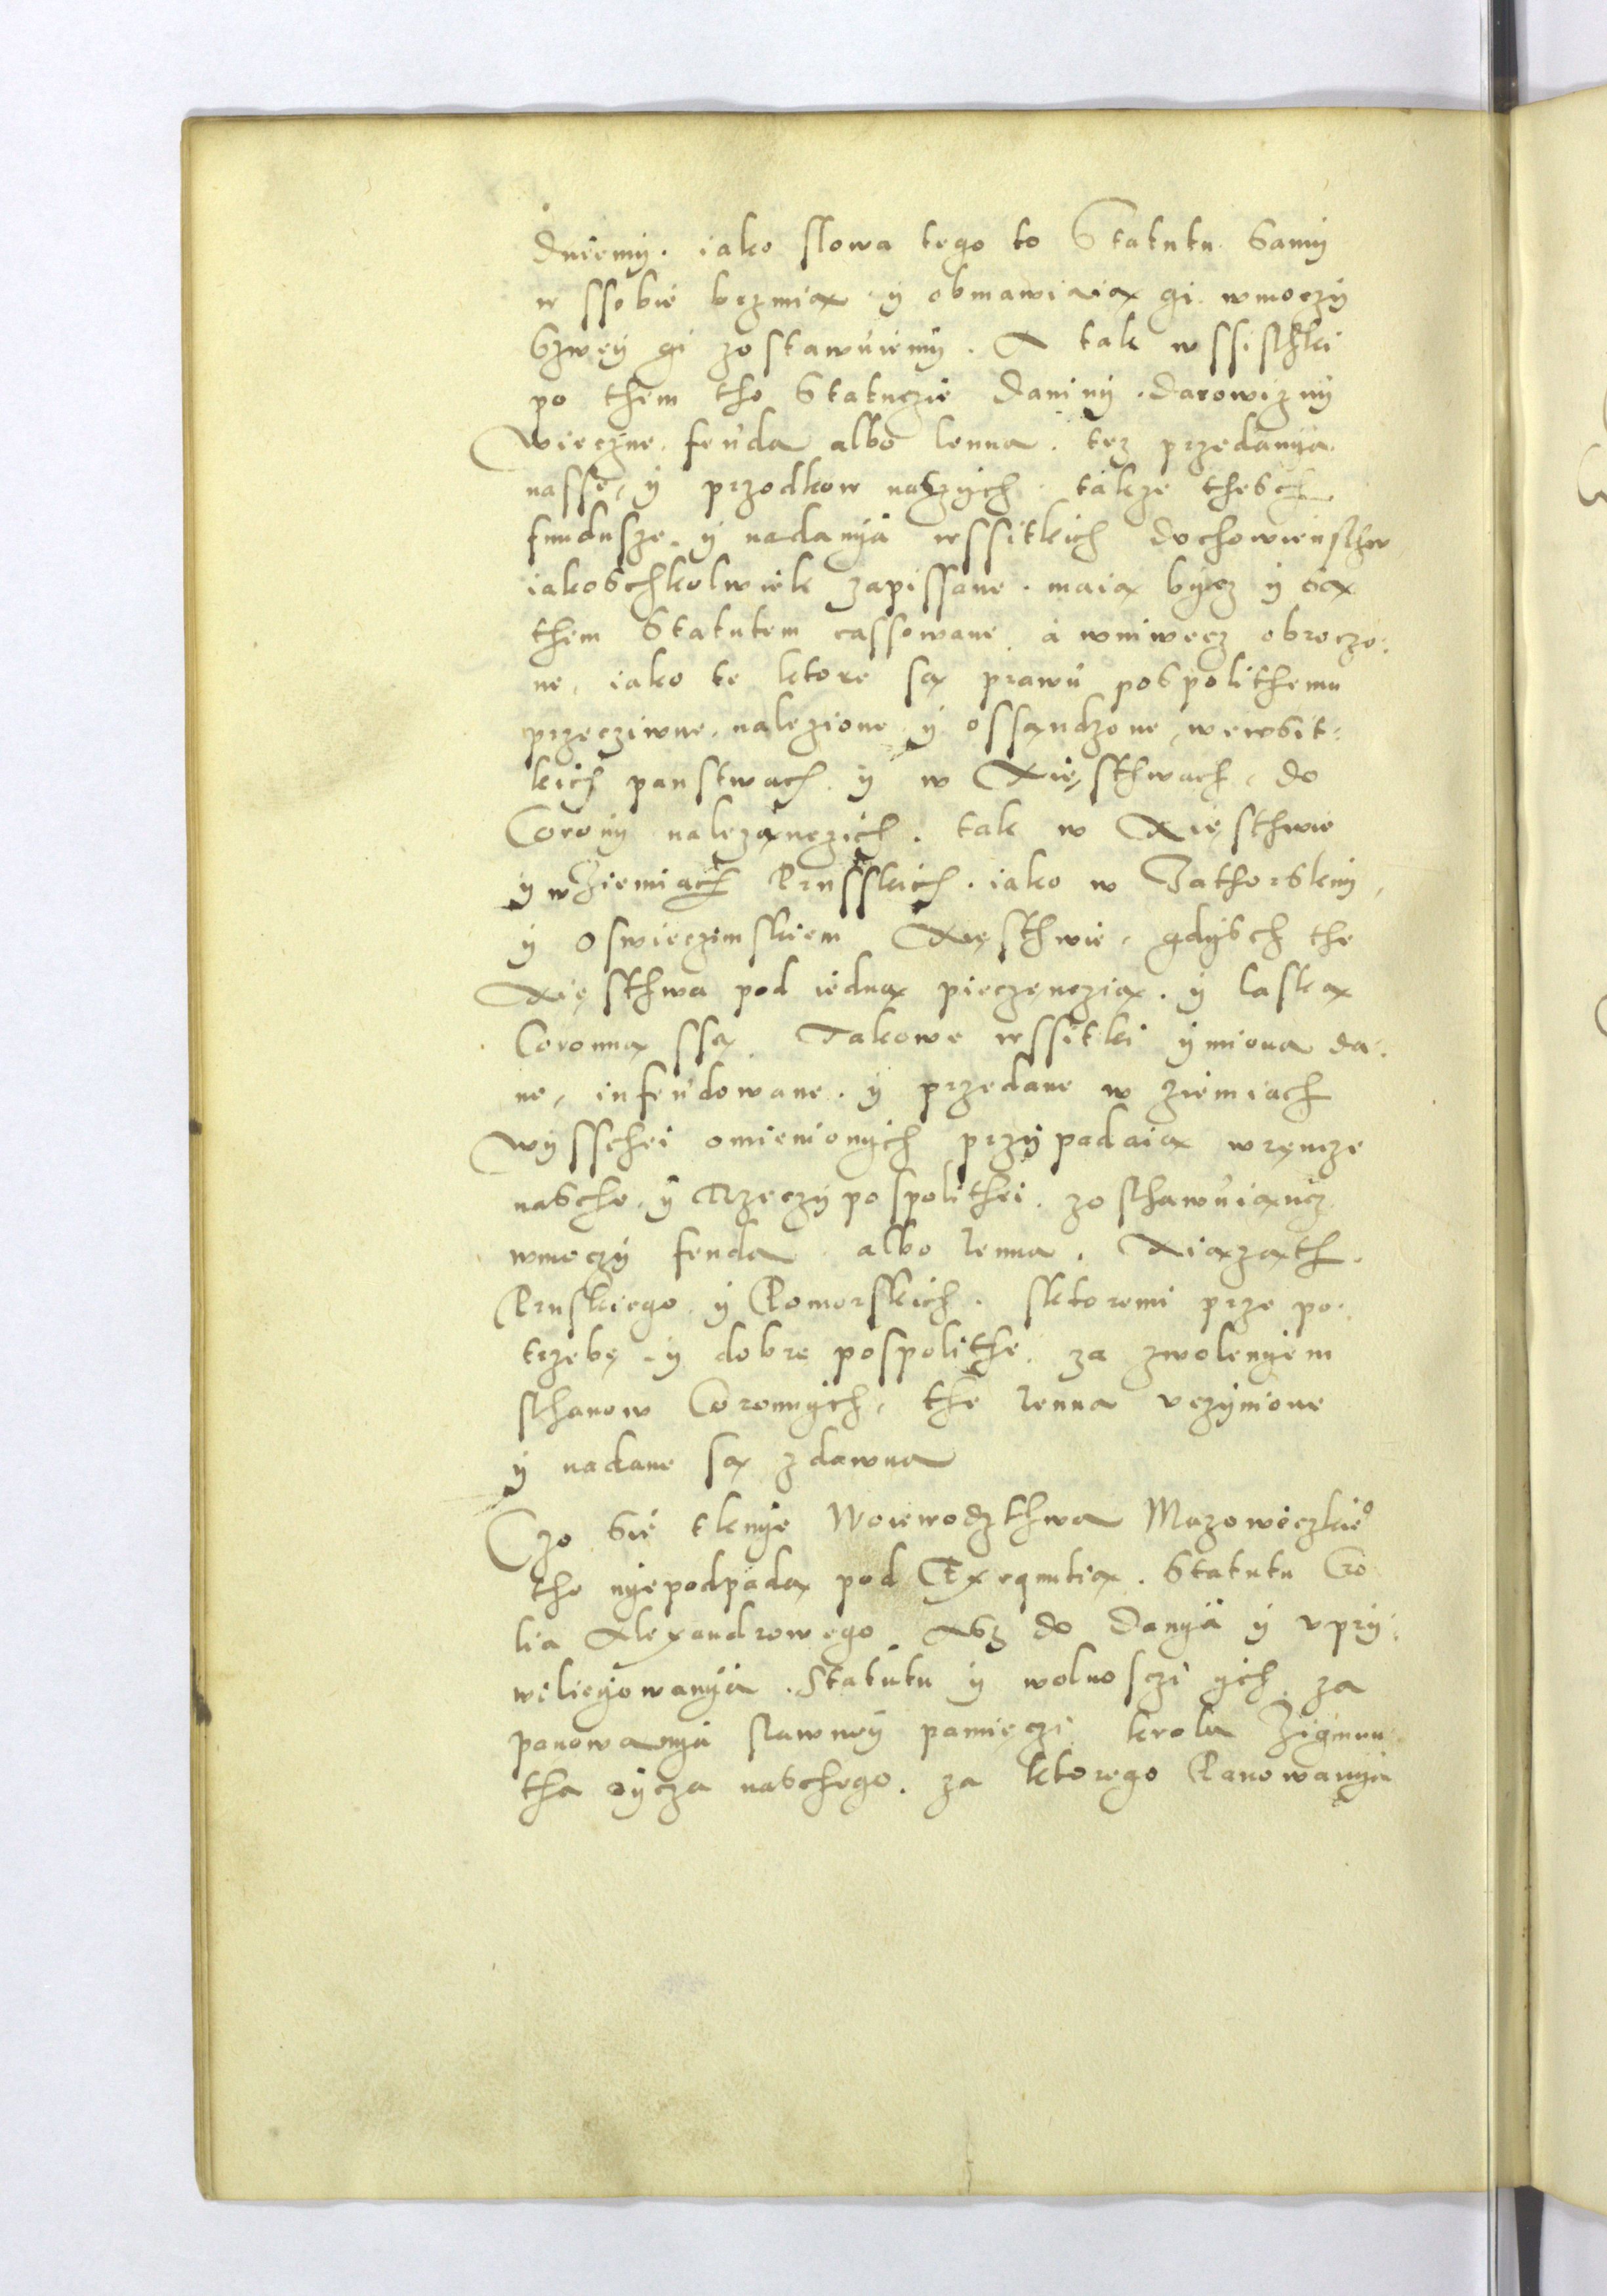 duiemÿ. iako slowa tego to Statutu samÿ
w ssobie brzmią ÿ obmawiaią gi wmoczÿ
szweÿ gi zostawuiemÿ. A tak wssischki
po them tho Statuczie daninÿ. darowiznÿ
wieczne. feuda albo lenna. tez przedanÿa
nasse, ÿ przodkow naszÿch. takze thesch
fundusze. ÿ nadanÿa wssitkich duchowiensthw
iakoschkolwiek zapissane. maią bÿcz ÿ są
them Statutem cassowane. a wniwecz obroczo:
ne, iako te ktore są prawu pospolithemu
przecziwne. nalezione ÿ ossandzone, wewsit:
kich panstwach. ÿ w Xięsthwach, do
Coronÿ nalezanczich. tak w Xięsthwie
ÿ w Ziemiach Prusskich. iako w Zathorskiÿ,
ÿ Oswieczimskiem Xięsthwie, gdÿsch the
Xięsthwa pod iedną pieczęnczią. ÿ laską
Coronną ssą. Takowe wssitki ÿmiona da:
ne, infeudowane. ÿ przedane w ziemiach
wÿsschei omienionÿch przÿpadaią wręncze
nasche. ÿ Rzeczÿpospolithei. zosthawuiąncz
wmoczÿ feuda albo lenna. Xiązath.
Pruskiego. ÿ Pomorskich. sktoremi prze po:
trzebę. ÿ dobre pospolithe. za zwolenÿem
sthanow Coronnÿch, the lenna vczÿnione
ÿ nadane są zdawna
Czo sie tknÿe Woiewodzthwa Mazowieczkie°
the nÿepodpadą pod Exequutią. Statutu Cro
lia Alexandrowego. Asz do danÿa ÿ vprÿ:
wiliegowanÿa. Statutu ÿ wolnosczi ÿch. za
panowanÿa slawneÿ pamięczi krola Zigmun
tha oÿcza naschego. za ktorego Panowanÿa